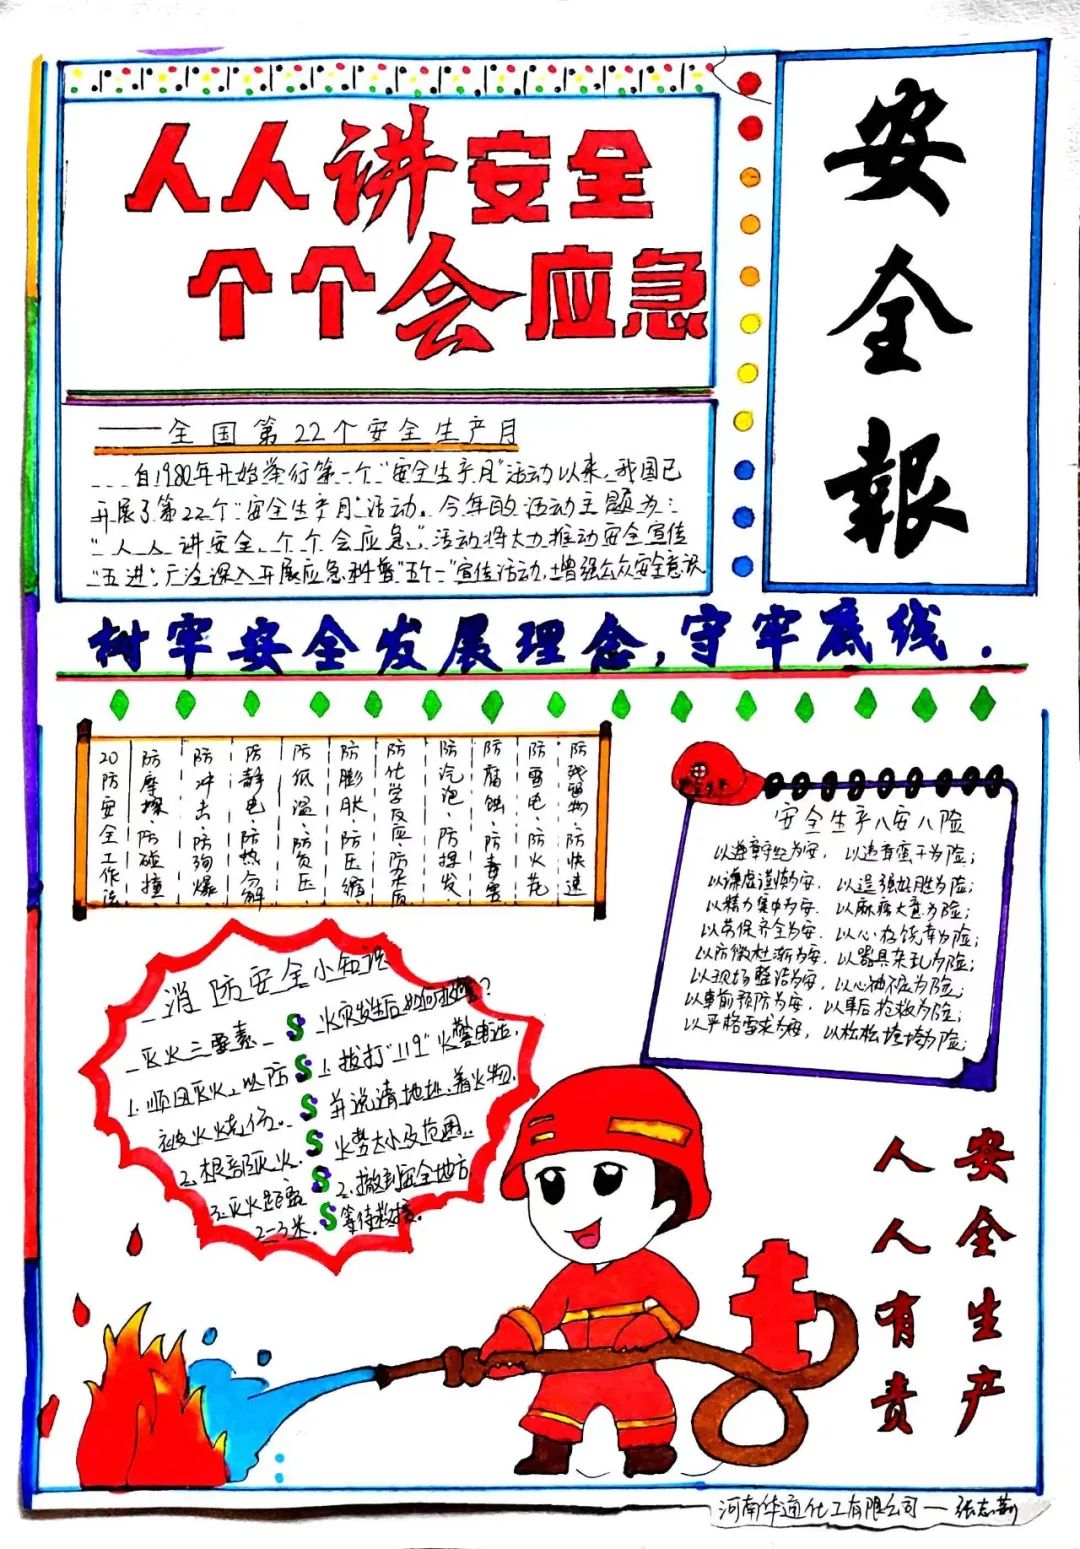 人人讲安全
个个会应急
安全報
——全国第22个安全生产月
自1980年开始举行第一个"安全生产月"活动以来,我国已
开展了第22个"安全生产月"活动。今年的活动主题为:
"人人讲安全、个个会应急",活动将大力推动安全宣传
"五进",广泛深入开展应急科普"五个一"宣传活动,增强公众安全意识
树牢安全发展理念,守牢底线.
20防安全工作法
防摩擦·防碰撞
防冲击·防殉爆
防静电·防热分解
防低温·防负压
防膨胀·防压缩
防化学反应·防杂质
防汽泡·防挥发
防腐蚀·防毒害
防雷电·防火花
防残留物·防快速
安全生产八安八险
以遵章守纪为安,以违章蛮干为险;
以谦虚谨慎为安,以逞强好胜为险;
以精力集中为安,以麻痹大意为险;
以劳保齐全为安,以心存侥幸为险;
以防微杜渐为安,以器具杂乱为险;
以现场整洁为安,以心神不定为险;
以事前预防为安,以事后抢救为险;
以严格需求为安,以松松垮垮为险;
消防安全小知识
灭火三要素
1.顺风灭火,以防
被火烧伤.
2.根部灭火.
3.灭火距离
2-3米.
火灾发生后如何处理?
1.拔打"119"火警电话,
并说清地址、着火物,
火势大小及范围.
2.撤到安全地方
等待救援.
安全生产
人人有责
河南华通化工有限公司—张志莉